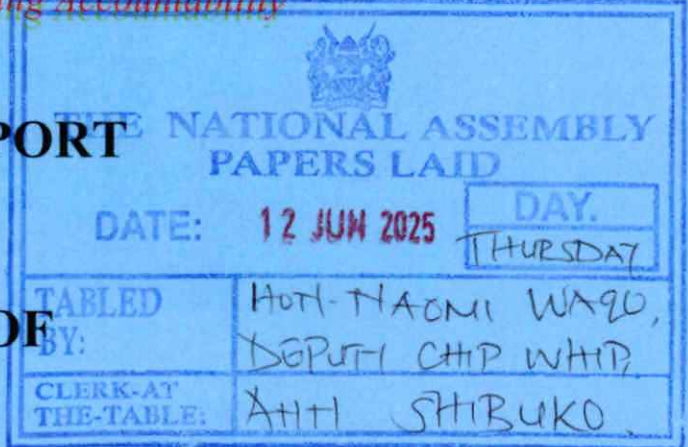 ing Accountability
PORT
THE NATIONAL ASSEMBLY
PAPERS LAID
DATE: 12 JUN 2025
DAY.
THURSDAY
TABLED BY:
HON. NAOMI WAQO,
DEPUTY CHIP WHIP,
OF
CLERK-AT THE-TABLE:
SHIBUKO